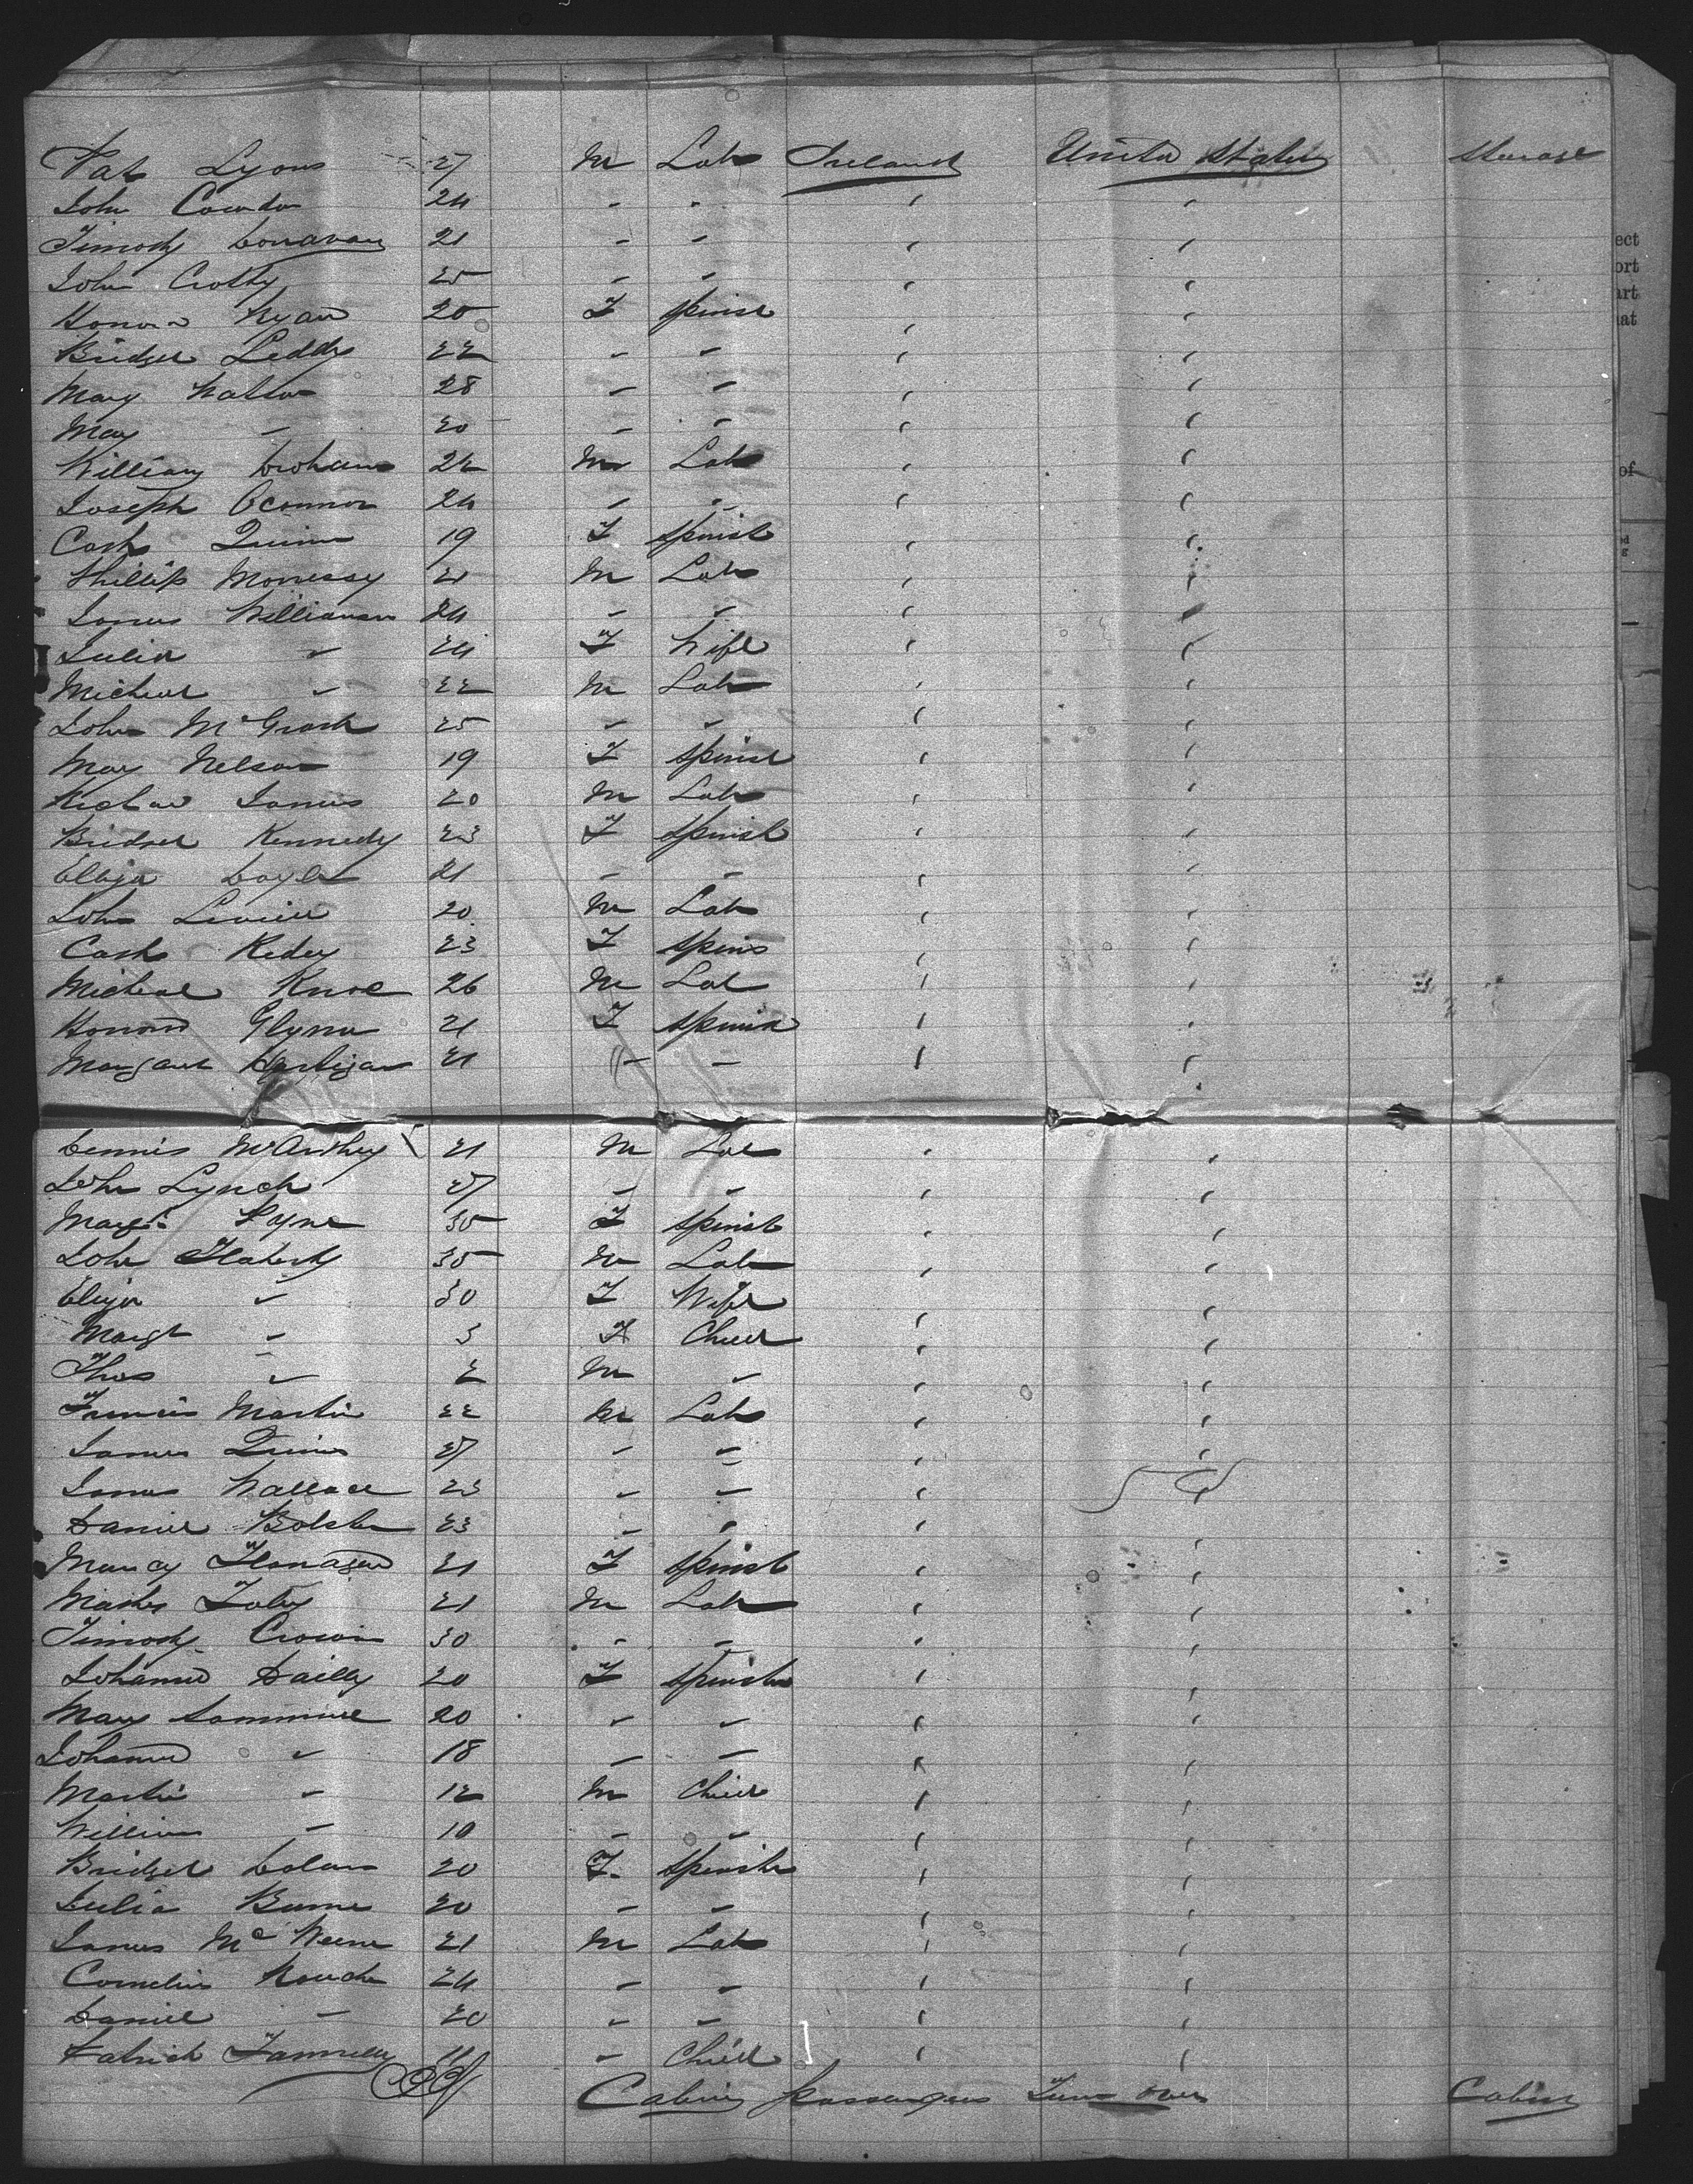 Pat Lyons 27 M Lab Ireland United States Steerage
John 24 - - ' '
Timothy Donavan 21 - - ' '
John Crotty 25 - - ' '
Honora Ryan 20 F Spinst ' '
Bridget Leddy 22 - - ' '
Mary Watson 28 - - ' '
May - 20 - - ' '
William 22 M Lab ' '
Joseph Oconnor 24 - - ' '
Cath Quinn 19 F Spinst ' '
Phillip Morrissy 21 M Lab ' '
James Williamson 24 - - ' '
Julia " 24 F Wife ' '
Micheal " 22 M Lab ' '
John McGrath 25 - - ' '
May Nelson 19 F Spinst ' '
Richard James 20 M Lab ' '
Bridget Kennedy 23 F Spinst ' '
Eliza Doyle 21 - - ' '
John 20 M Lab ' '
Cath 23 F Spins ' '
Micheal 26 M Lab ' '
Honora Glynn 21 F Spinst ' '
Margaret Hartigan 21 " - ' '
Dennis McArthey 21 M Lab ' '
John Lynch 27 - - ' '
Margt Hyne 30 F Spinst ' '
John Flaherty 35 M Lab ' '
Eliza " 30 F Wife ' '
Margt " 3 F Child ' '
Thos " 2 M " ' '
Francis Martin 22 M Lab ' '
James Quinn 27 - - ' '
James Wallace 23 - - ' '
Daniel Bolster 23 - - ' '
Nancy Flanagan 21 F Spinst ' '
Foley 21 M Lab ' '
Timothy Cronin 30 - - ' '
Johanna Dailly 20 F Spinster ' '
Mary 20 " " ' '
Johanna " 18 - - ' '
Martin " 12 M Child ' '
William - 10 - - ' '
Bridget Dolan 20 F Spinster ' '
Julia Burne 20 - - ' '
James Mc 21 M Lab ' '
Cornelius Roache 24 - - ' '
Daniel - 20 - - ' '
Patrick Fannelly 11 - Child ' '
Cabin Passengers Turn over Cabin
ect
ort
art
hat
of